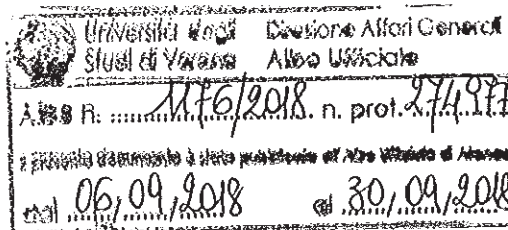 Università degli Studi di Verona
Direzione Affari Generali
Albo Ufficiale
R: 1176/2018. n. prot. 274977
dal 06/09/2018 al 30/09/2018